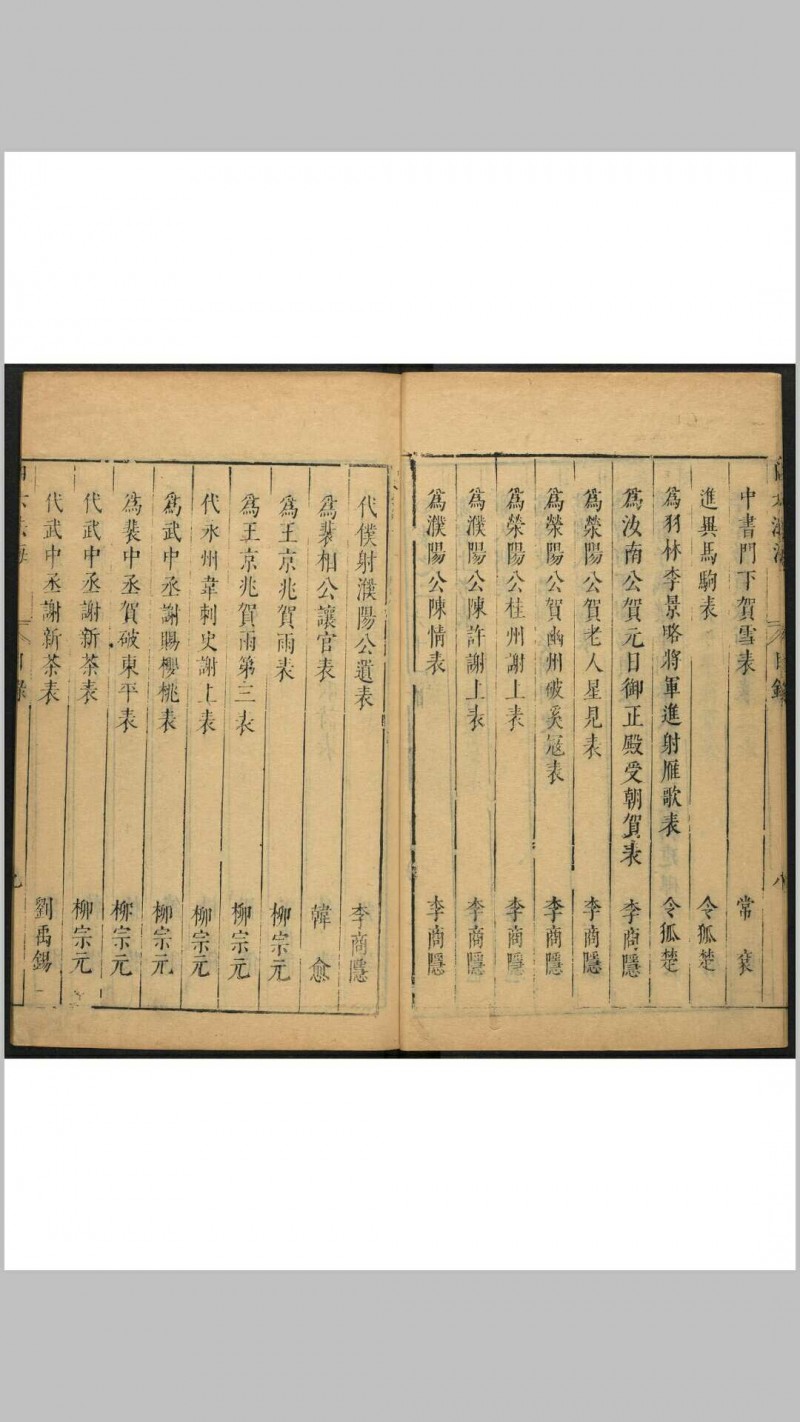 中書門下賀雪表 常袞
進異馬駒表 令狐楚
爲羽林李景略將軍進射雁歌表 令狐楚
爲汝南公賀元日御正殿受朝賀表 李商隱
爲滎陽公賀老人星見表 李商隱
爲滎陽公賀幽州破奚寇表 李商隱
爲滎陽公桂州謝上表 李商隱
爲濮陽公陳許謝上表 李商隱
爲濮陽公陳情表 李商隱
代僕射濮陽公遺表 李商隱
爲裴相公讓官表 韓愈
爲王京兆賀雨表 柳宗元
爲王京兆賀雨第三表 柳宗元
代永州韋刺史謝上表 柳宗元
爲武中丞謝賜櫻桃表 柳宗元
爲裴中丞賀破東平表 柳宗元
代武中丞謝新茶表 柳宗元
代武中丞謝新茶表 劉禹錫